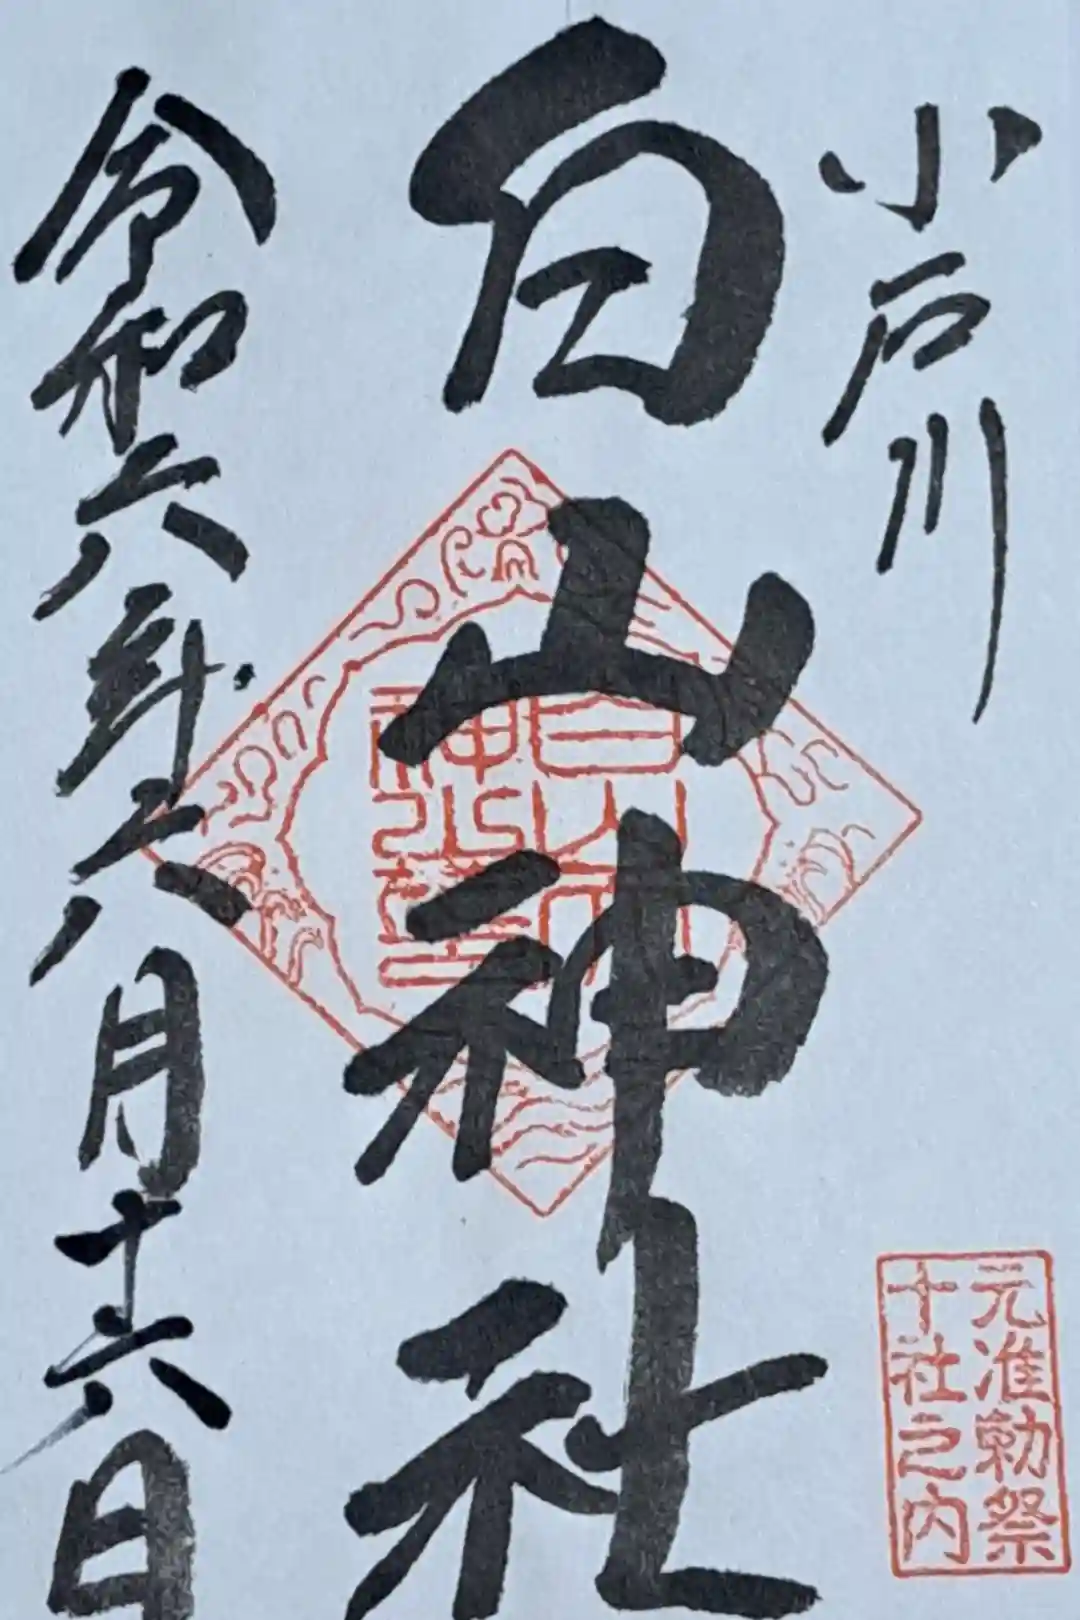 小戸川
元准勅祭
十社之内
白山神社
白山
神璽
令和六年六月十六日